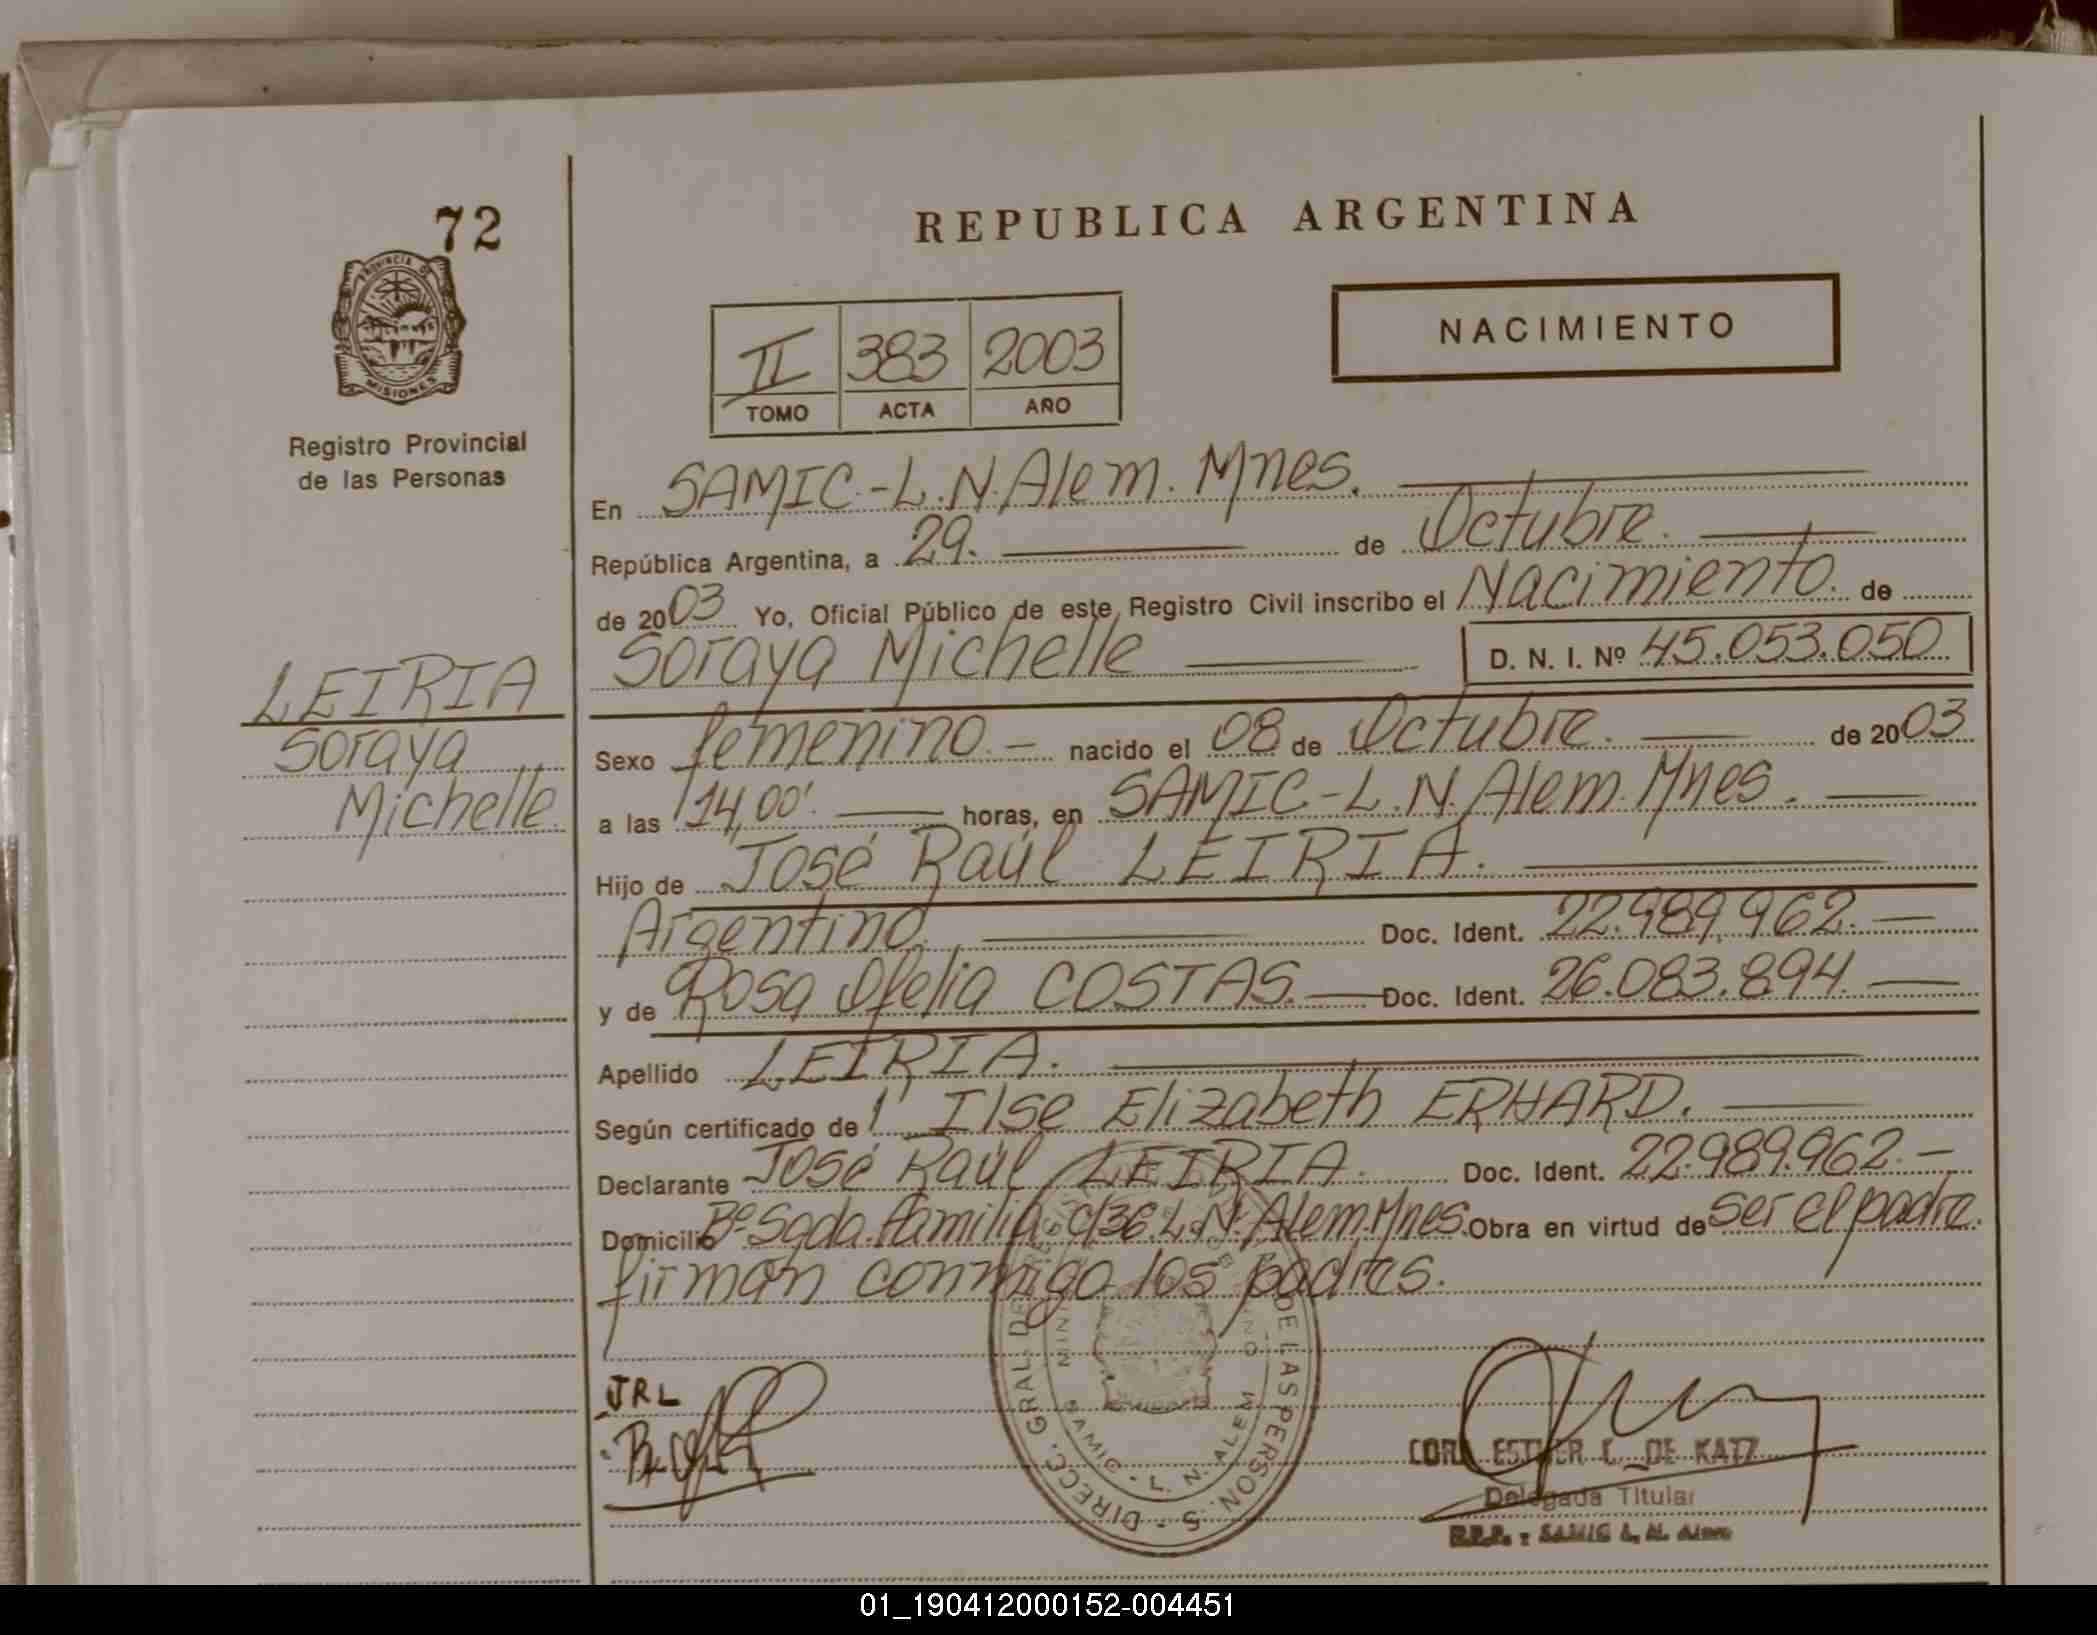 72
PROVINCIA DE
MISIONES
Registro Provincial
de las Personas
LEIRIA
Soraya
Michelle.
REPUBLICA ARGENTINA
II 383 2003
TOMO ACTA AÑO
NACIMIENTO
En SAMIC.-L.N.Alem. Mnes.
República Argentina, a 29. de Octubre.
de 2003 Yo, Oficial Público de este Registro Civil inscribo el Nacimiento. de
Soraya Michelle D. N. I. Nº 45.053.050
Sexo femenino.- nacido el 08 de Octubre. de 2003
a las 14,00'. horas, en SAMIC.-L.N.Alem.Mnes.
Hijo de José Raúl LEIRIA.
Argentino. Doc. Ident. 22.989.962.-
y de Rosa Ofelia COSTAS.- Doc. Ident. 26.083.894.
Apellido LEIRIA.
Según certificado de Ilse Elizabeth ERHARD.
Declarante José Raúl LEIRIA. Doc. Ident. 22.989.962.-
Domicilio Bº Sgda.familia.c/36.L.N.Alem.Mnes. Obra en virtud de ser el padre.
firman conmigo los padres.
JRL
DIRECC. GRAL. DE DE LAS PERSON.
SAMIC - L. N. ALEM
ESTHER C. DE KATZ
Delegada Titular
R.P.P. - SAMIC L. N. Alem
01_190412000152-004451